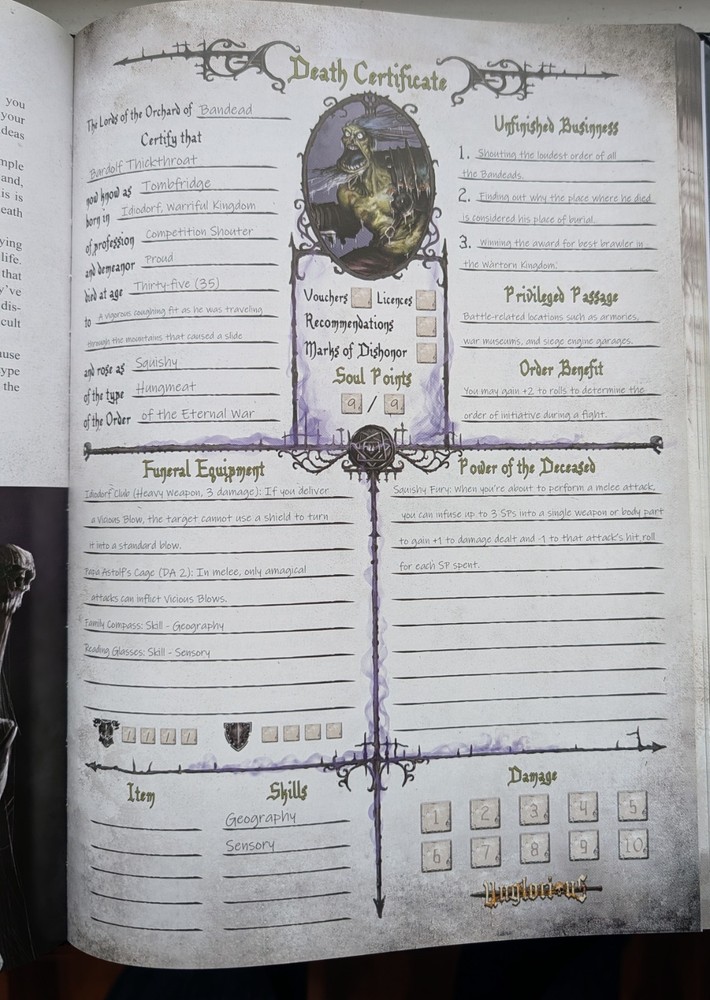 you
your
deas
mple
and,
is is
eath
ying
life.
that
y've
dis-
cult
ause
ype
the
Death Certificate
The Lords of the Orchard of Bandead
Certify that
Bardolf Thickthroat
now know as Tombfridge
born in Idiodorf, Warriful Kingdom
of profession Competition Shouter
and demeanor Proud
died at age Thirty-five (35)
to A vigorous coughing fit as he was traveling
through the mountains that caused a slide
and rose as Squishy
of the type Hungmeat
of the Order of the Eternal War
Vouchers Licences
Recommendations
Marks of Dishonor
Soul Points
9 / 9
Unfinished Businness
1. Shouting the loudest order of all
the Bandeads.
2. Finding out why the place where he died
is considered his place of burial.
3. Winning the award for best brawler in
the Wartorn Kingdom.
Privileged Passage
Battle-related locations such as armories,
war museums, and siege engine garages.
Order Benefit
You may gain +2 to rolls to determine the
order of initiative during a fight.
Funeral Equipment
Idiodorf Club (Heavy Weapon, 3 damage): If you deliver
a Vicious Blow, the target cannot use a shield to turn
it into a standard blow.
Papa Astolf's Cage (DA 2): In melee, only amagical
attacks can inflict Vicious Blows.
Family Compass: Skill - Geography
Reading Glasses: Skill - Sensory
/ / / /
Power of the Deceased
Squishy Fury: When you're about to perform a melee attack,
you can infuse up to 3 SPs into a single weapon or body part
to gain +1 to damage dealt and -1 to that attack's hit roll
for each SP spent.
Item
Skills
Geography
Sensory
Damage
1 2 3 4 5
6 7 8 9 10
Unglorious